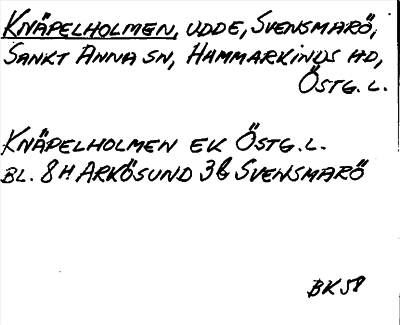 KNÄPELHOLMEN, UDDE, SVENSMARÖ,
SANKT ANNA SN, HAMMARKINDS HD,
ÖSTG. L.
KNÄPELHOLMEN EK ÖSTG. L.
BL. 8H ARKÖSUND 3G SVENSMARÖ
BK58